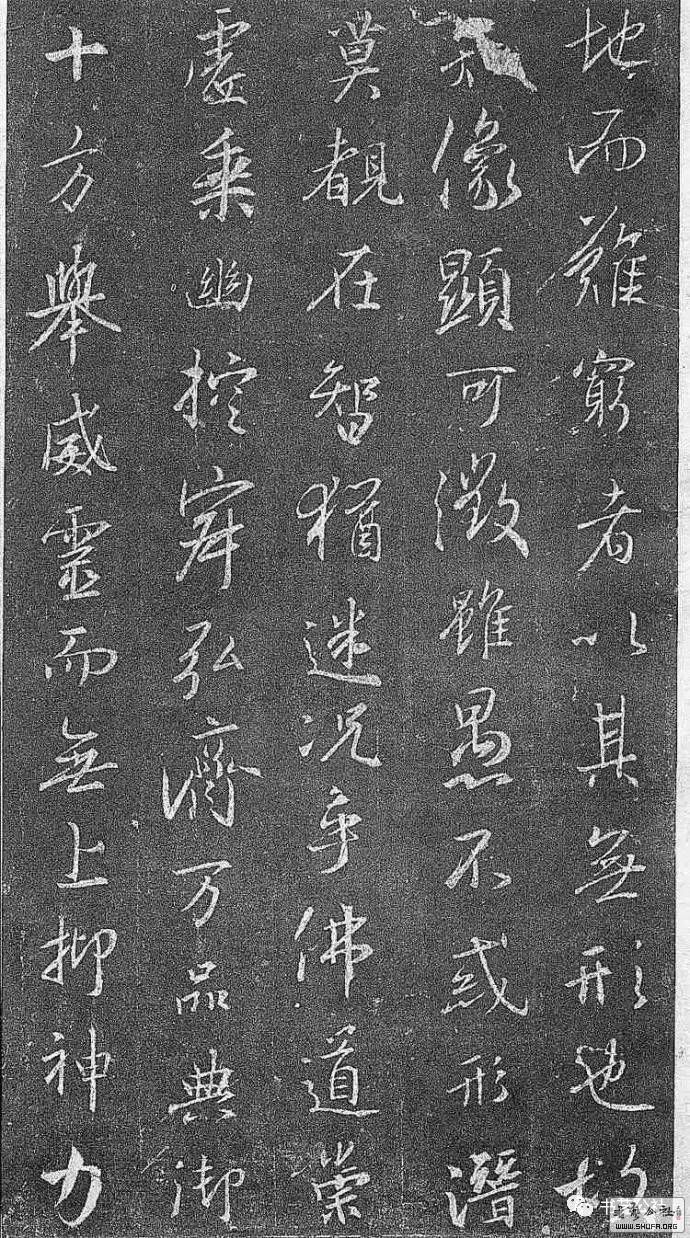 地而難窮者以其無形也故
像顯可徵雖愚不惑形潛
莫覩在智猶迷況乎佛道崇
虛乘幽控寂弘濟万品典御
十方舉威靈而無上抑神力
WWW.SHUFA.ORG